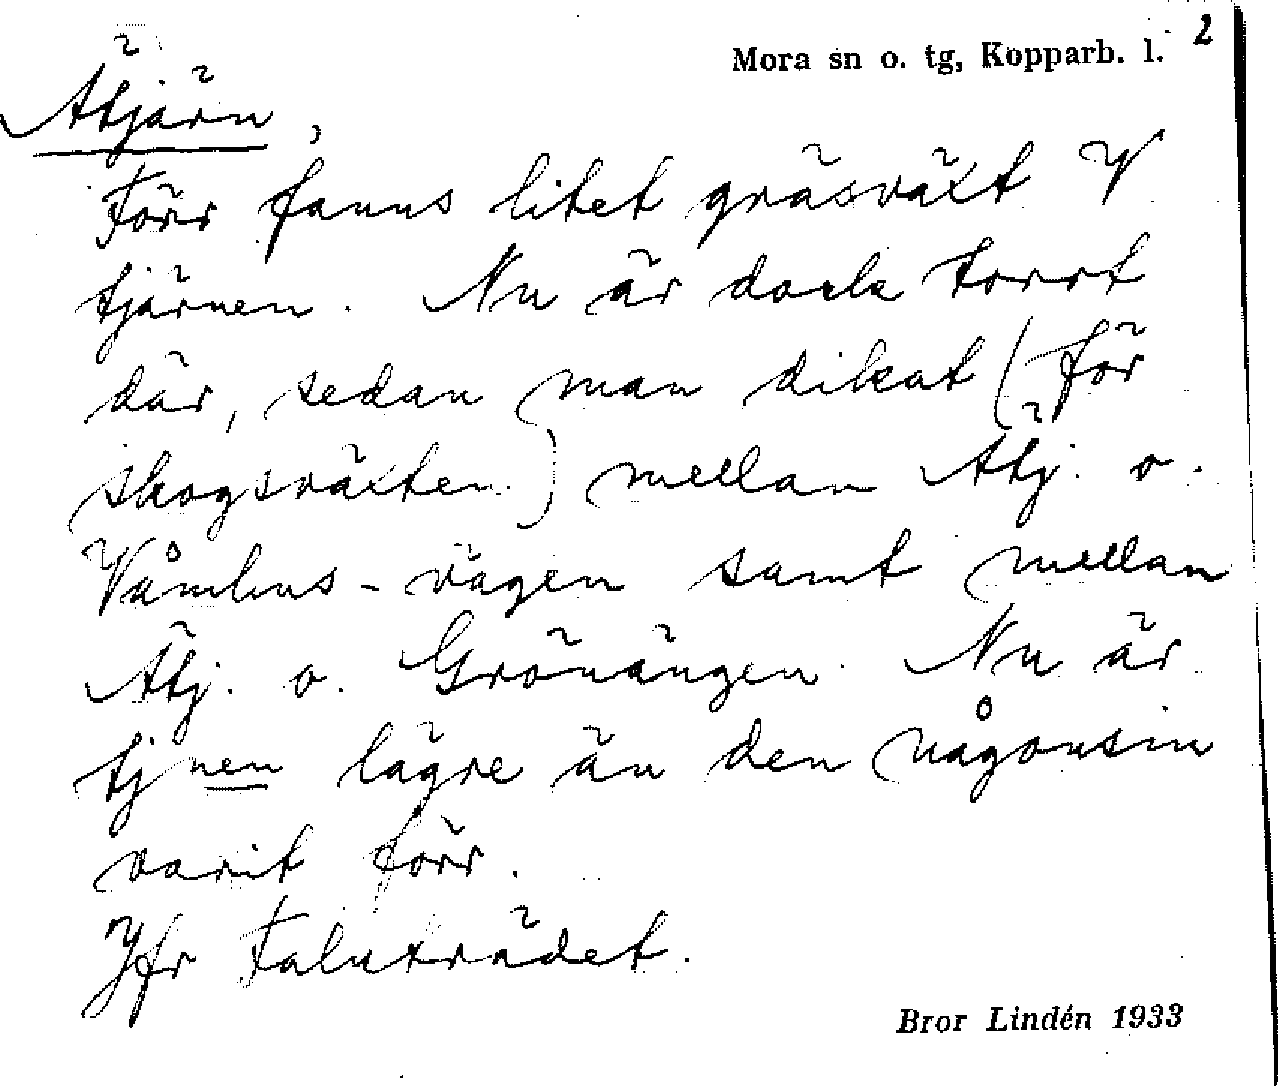 Mora sn o. tg, Kopparb. l. 2
Ätjärn,
Förr fanns litet gräsväxt V
tjärnen. Nu är dock torrt
där, sedan man dikat (för
skogsväxten) mellan Ätj. o.
Våmhus-vägen samt mellan
Ätj. o. Grönängen. Nu är
tjnen lägre än den någonsin
varit förr.
Jfr Faluträdet.
Bror Lindén 1933